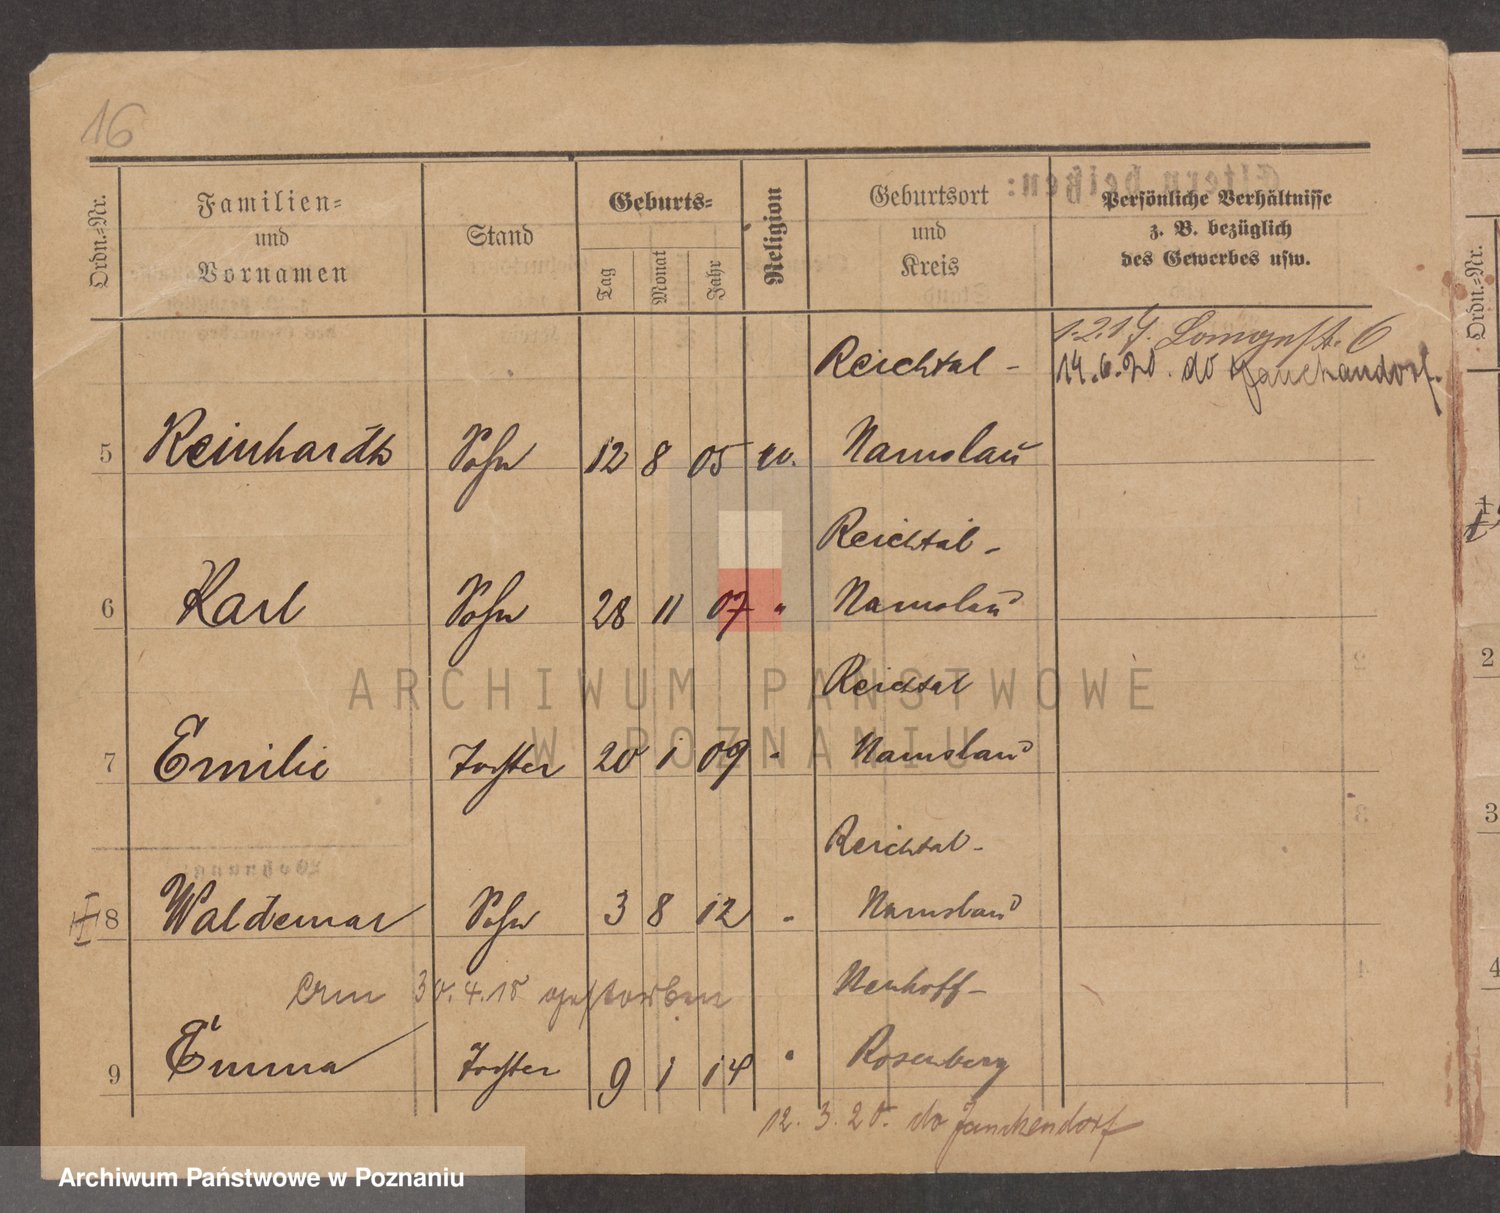 16
Ordn.-Nr.
Familien-
und
Vornamen
Stand
Geburts-
Tag
Monat
Jahr
Religion
Geburtsort
und
Kreis
Persönliche Verhältnisse
z. B. bezüglich
des Gewerbes usw.
Reichtal -
14.6.20. do
5 Reinhardt Sohn 12 8 05 ev. Namslau
Reichtal -
6 Karl Sohn 28 11 07 " Namslau
Reichtal
7 Emilie Tochter 20 1 09 " Namslau
Reichtal -
8 Waldemar Sohn 3 8 12 " Namslau
am 30.4.18 gestorben Neuhoff -
9 Emma Tochter 9 1 14 " Rosenberg
12. 3. 20. do Jankendorf
Ordn.-Nr.
2
3
4
ARCHIWUM PAŃSTWOWE
W POZNANIU
Archiwum Państwowe w Poznaniu